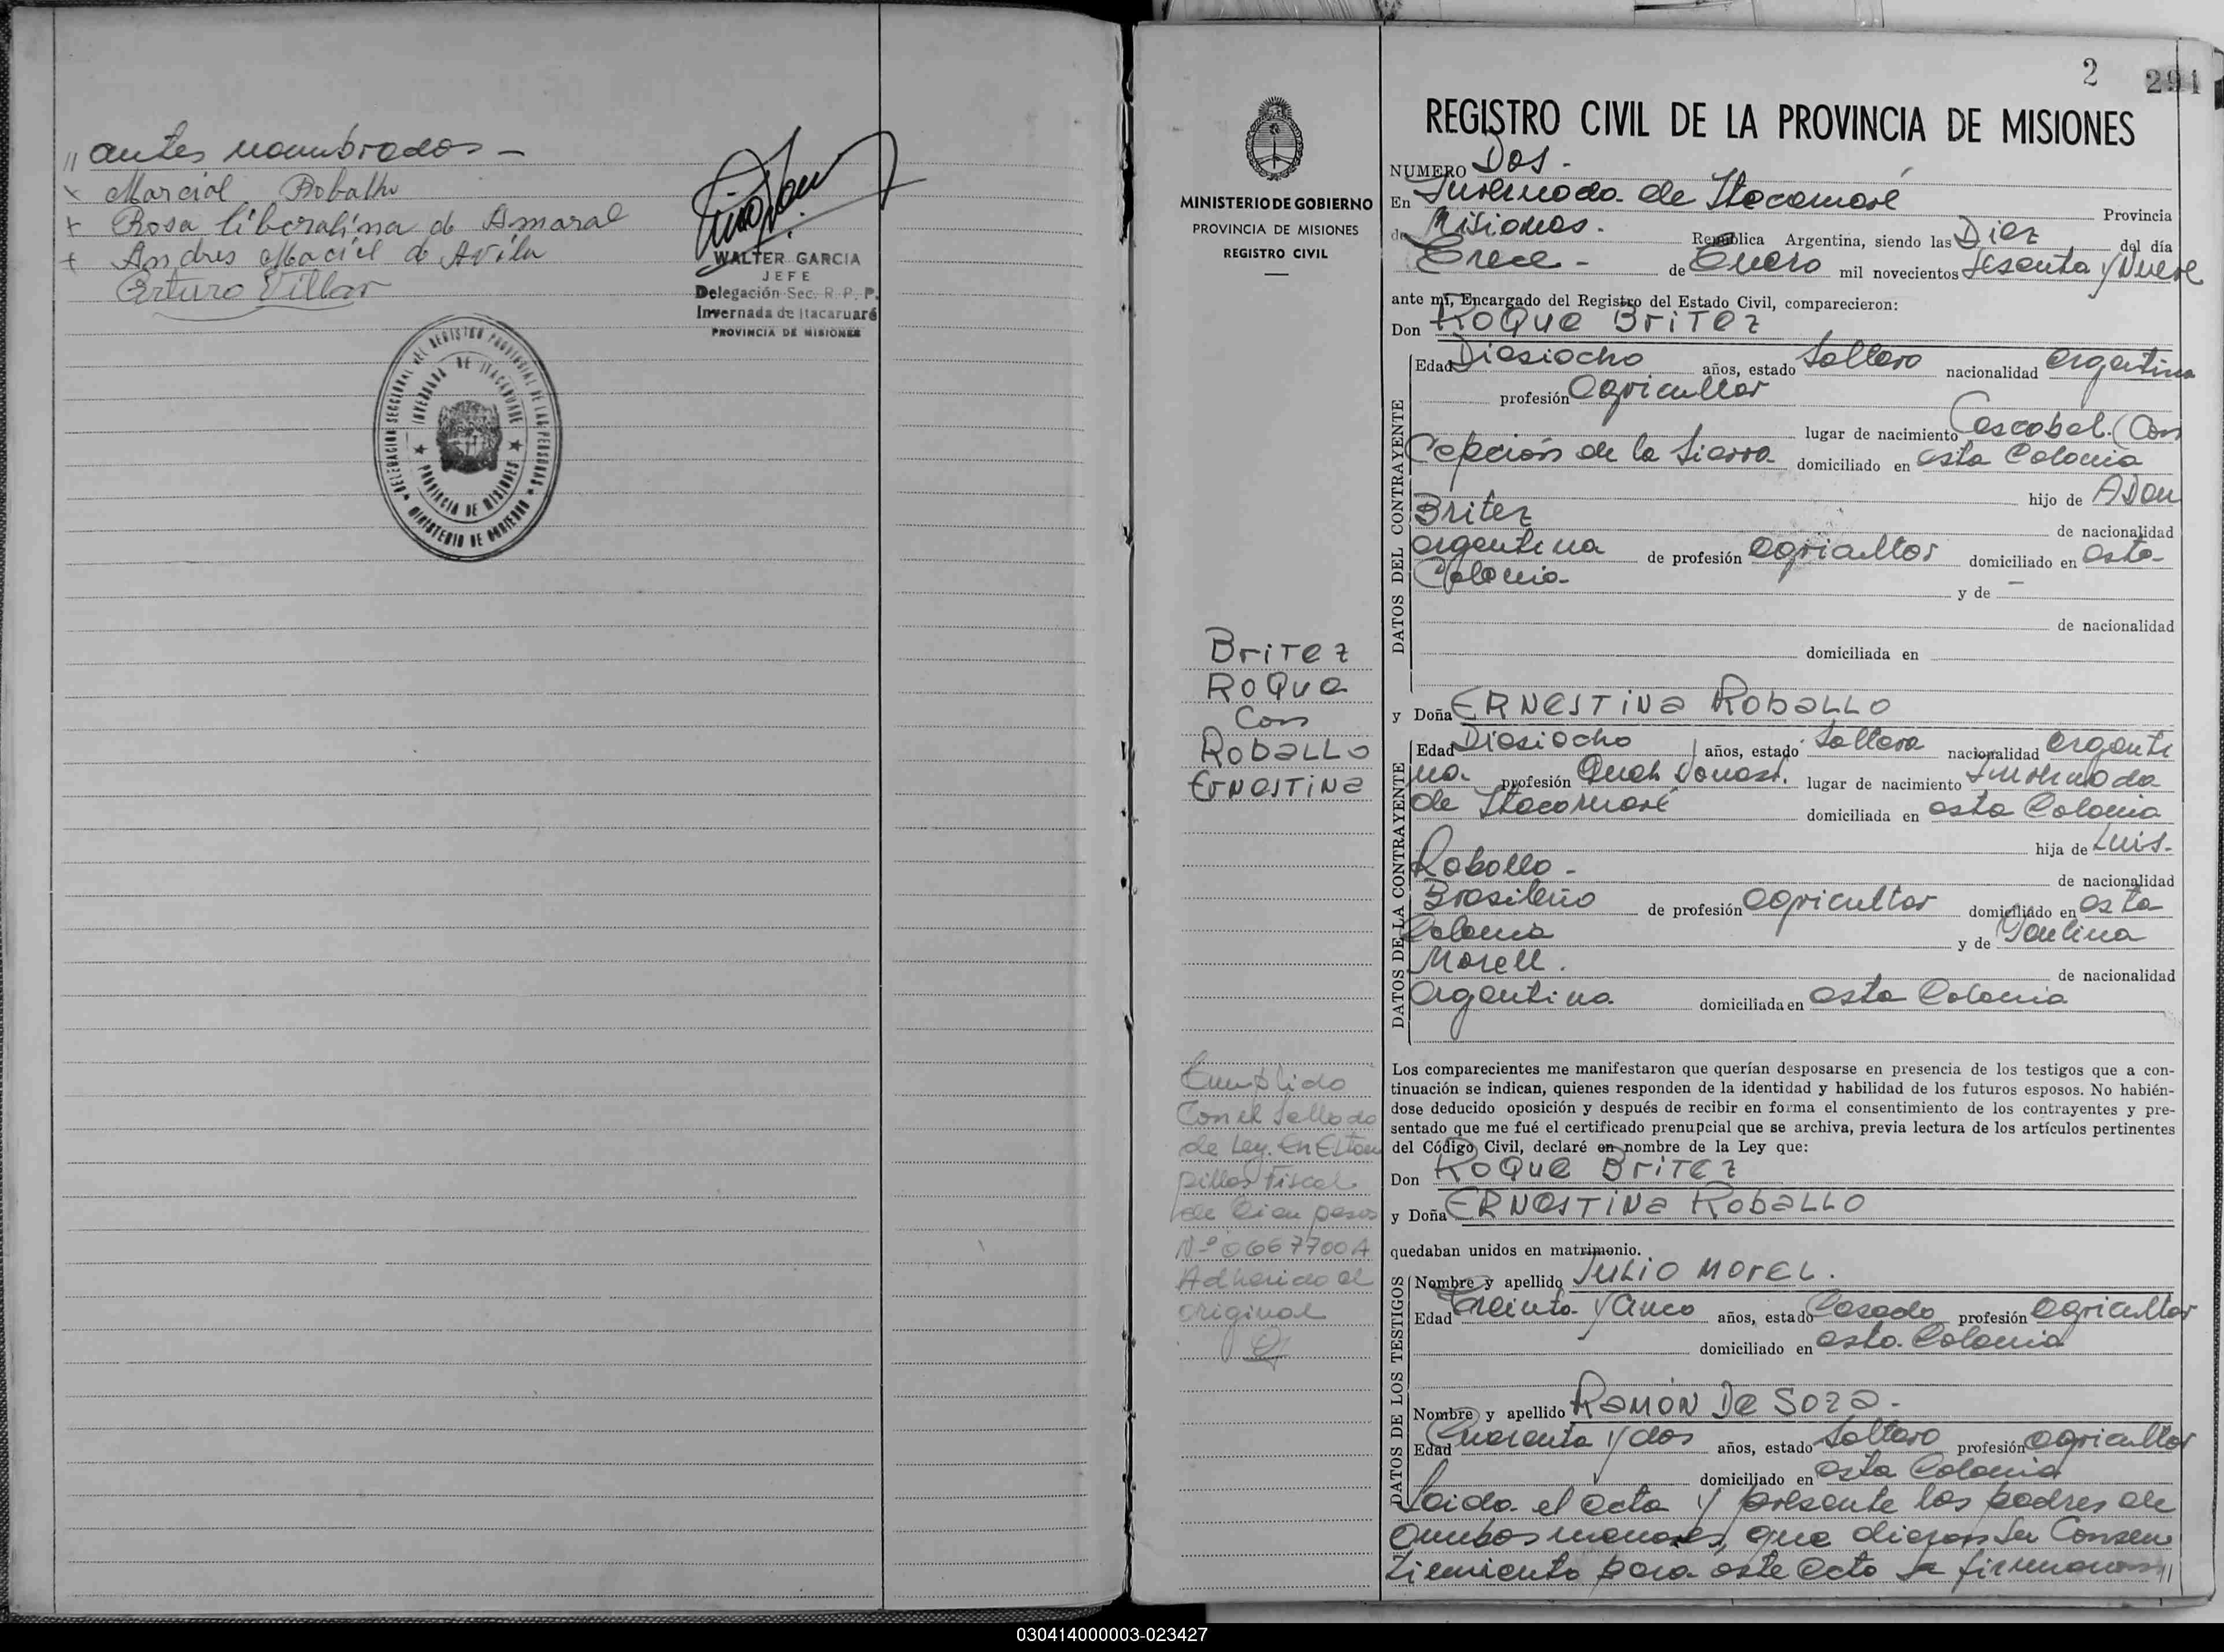 " antes nombrados -
x Marcial Roballo
+ Rosa liberalina de Amaral
+ Andres Maciel de Avila
Arturo Villar
WALTER GARCIA
JEFE
Delegación Sec. R. P. P.
Invernada de Itacaruaré
PROVINCIA DE MISIONES
DELEGACION SECCIONAL DEL REGISTRO PROVINCIAL DE LAS PERSONAS
INVERNADA DE ITACARUARE
PROVINCIA DE MISIONES
MINISTERIO DE GOBIERNO
2 291
REGISTRO CIVIL DE LA PROVINCIA DE MISIONES
MINISTERIO DE GOBIERNO
PROVINCIA DE MISIONES
REGISTRO CIVIL
NUMERO Dos -
En Invernada de Itacaruaré Provincia
de Misiones. República Argentina, siendo las Diez del día
Trece - de Enero mil novecientos sesenta y Nueve
ante mí, Encargado del Registro del Estado Civil, comparecieron:
Don ROQUE BRITEZ
DATOS DEL CONTRAYENTE
Edad Diesiocho años, estado soltero nacionalidad argentina
profesión agricultor
lugar de nacimiento Cascabel. (Con
cepción de la Sierra domiciliado en esta Colonia
hijo de ADan
Britez de nacionalidad
argentina de profesión agricultor domiciliado en esta
Colonia y de —
de nacionalidad
domiciliada en
Britez
ROQue
Con
RobaLLo
ErNesTiNa
y Doña ERNesTiNa RobaLLO
DATOS DE LA CONTRAYENTE
Edad Diesiocho años, estado soltera nacionalidad argenti
na. profesión Queh. Domest. lugar de nacimiento Invernada
de Itacaruaré domiciliada en esta Colonia
hija de Luis.
Roballo - de nacionalidad
Brasileño de profesión agricultor domiciliado en esta
Colonia y de Paulina
Morell. de nacionalidad
argentina domiciliada en esta Colonia
Los comparecientes me manifestaron que querían desposarse en presencia de los testigos que a con-
tinuación se indican, quienes responden de la identidad y habilidad de los futuros esposos. No habién-
dose deducido oposición y después de recibir en forma el consentimiento de los contrayentes y pre-
sentado que me fué el certificado prenupcial que se archiva, previa lectura de los artículos pertinentes
del Código Civil, declaré en nombre de la Ley que:
Don ROQUE BRITEZ
y Doña ERNesTiNa RobaLLO
quedaban unidos en matrimonio.
Cumplido
Con el Sellado
de Ley. En Estam
pillas Fiscal
de Cien pesos
Nº 0667700A
Adherido al
original
DATOS DE LOS TESTIGOS
Nombre y apellido JULIO MOREL.
Edad Treinta y Cinco años, estado Casado profesión agricultor
domiciliado en esta Colonia
Nombre y apellido RAMÓN De Soza -
Edad Cuarenta y dos años, estado soltero profesión agricultor
domiciliado en esta Colonia
Leida el acta y presente los padres de
ambos menores, que dieron su Consen
timiento para este acto la firmaron "
030414000003-023427